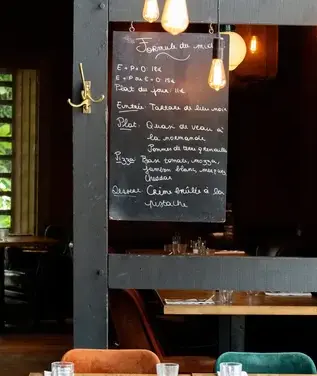 Formule du midi
E + P + D : 18€
E + P ou P + D : 15€
Plat du jour : 11€
Entrée : Tartare de lieu noir
Plat : Quasi de veau à
la normande
Pommes de terre grenailles
Pizza : Base tomate, mozza,
jambon blanc,
cheddar
Dessert : Crème brûlée à la
pistache